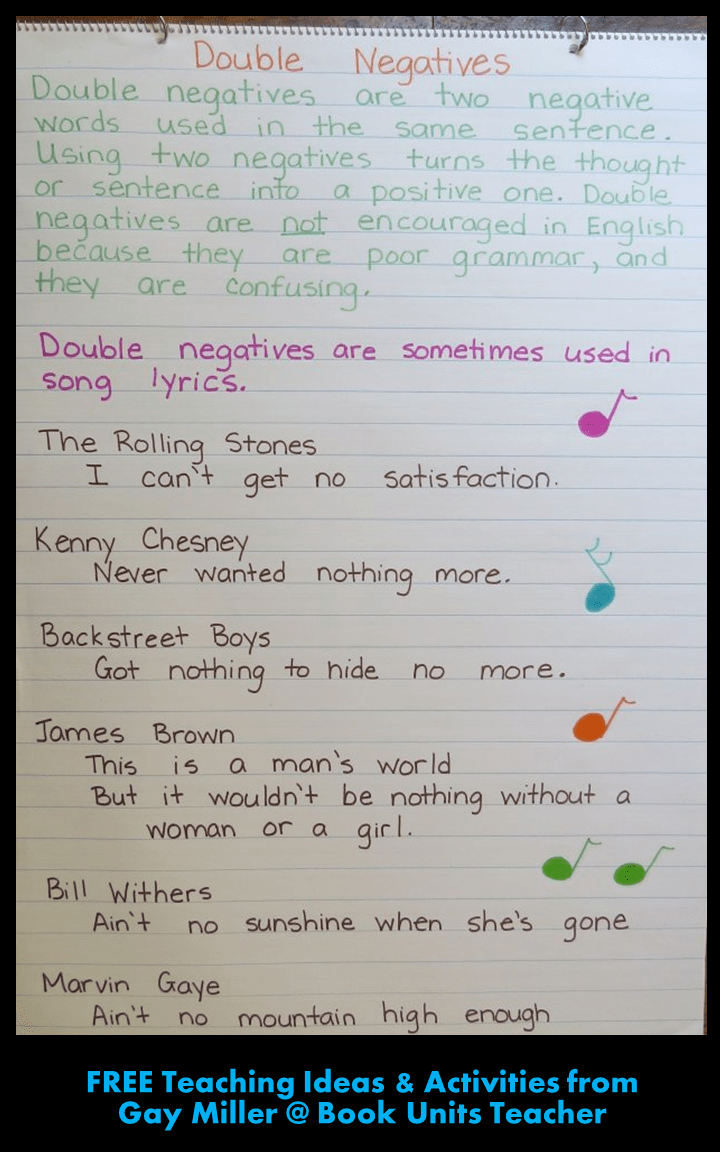 Double Negatives
Double negatives are two negative
words used in the same sentence.
Using two negatives turns the thought
or sentence into a positive one. Double
negatives are not encouraged in English
because they are poor grammar, and
they are confusing.
Double negatives are sometimes used in
song lyrics.
The Rolling Stones
I can't get no satisfaction.
Kenny Chesney
Never wanted nothing more.
Backstreet Boys
Got nothing to hide no more.
James Brown
This is a man's world
But it wouldn't be nothing without a
woman or a girl.
Bill Withers
Ain't no sunshine when she's gone
Marvin Gaye
Ain't no mountain high enough
FREE Teaching Ideas & Activities from
Gay Miller @ Book Units Teacher